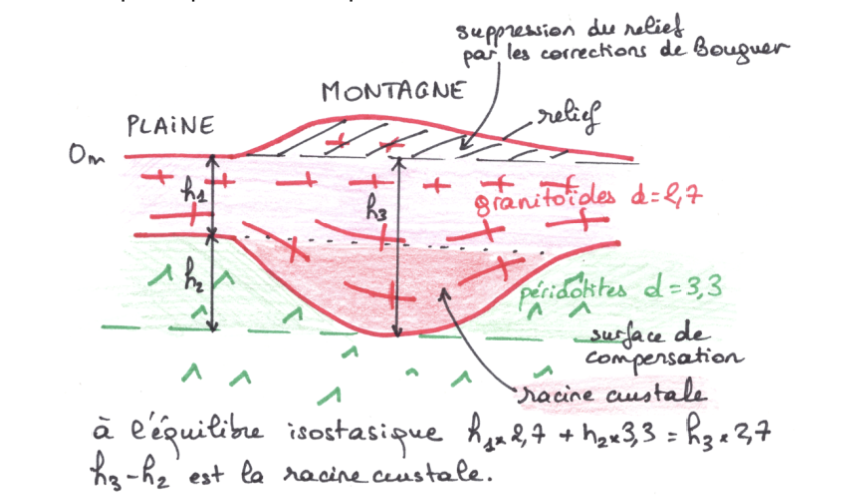 suppression du relief
par les corrections de Bouguer
MONTAGNE
PLAINE
relief
0m
h1
h3
granitoïdes d=2,7
h2
péridotites d=3,3
surface de
compensation
racine crustale
à l'équilibre isostasique h1×2,7 + h2×3,3 = h3×2,7
h3-h2 est la racine crustale.